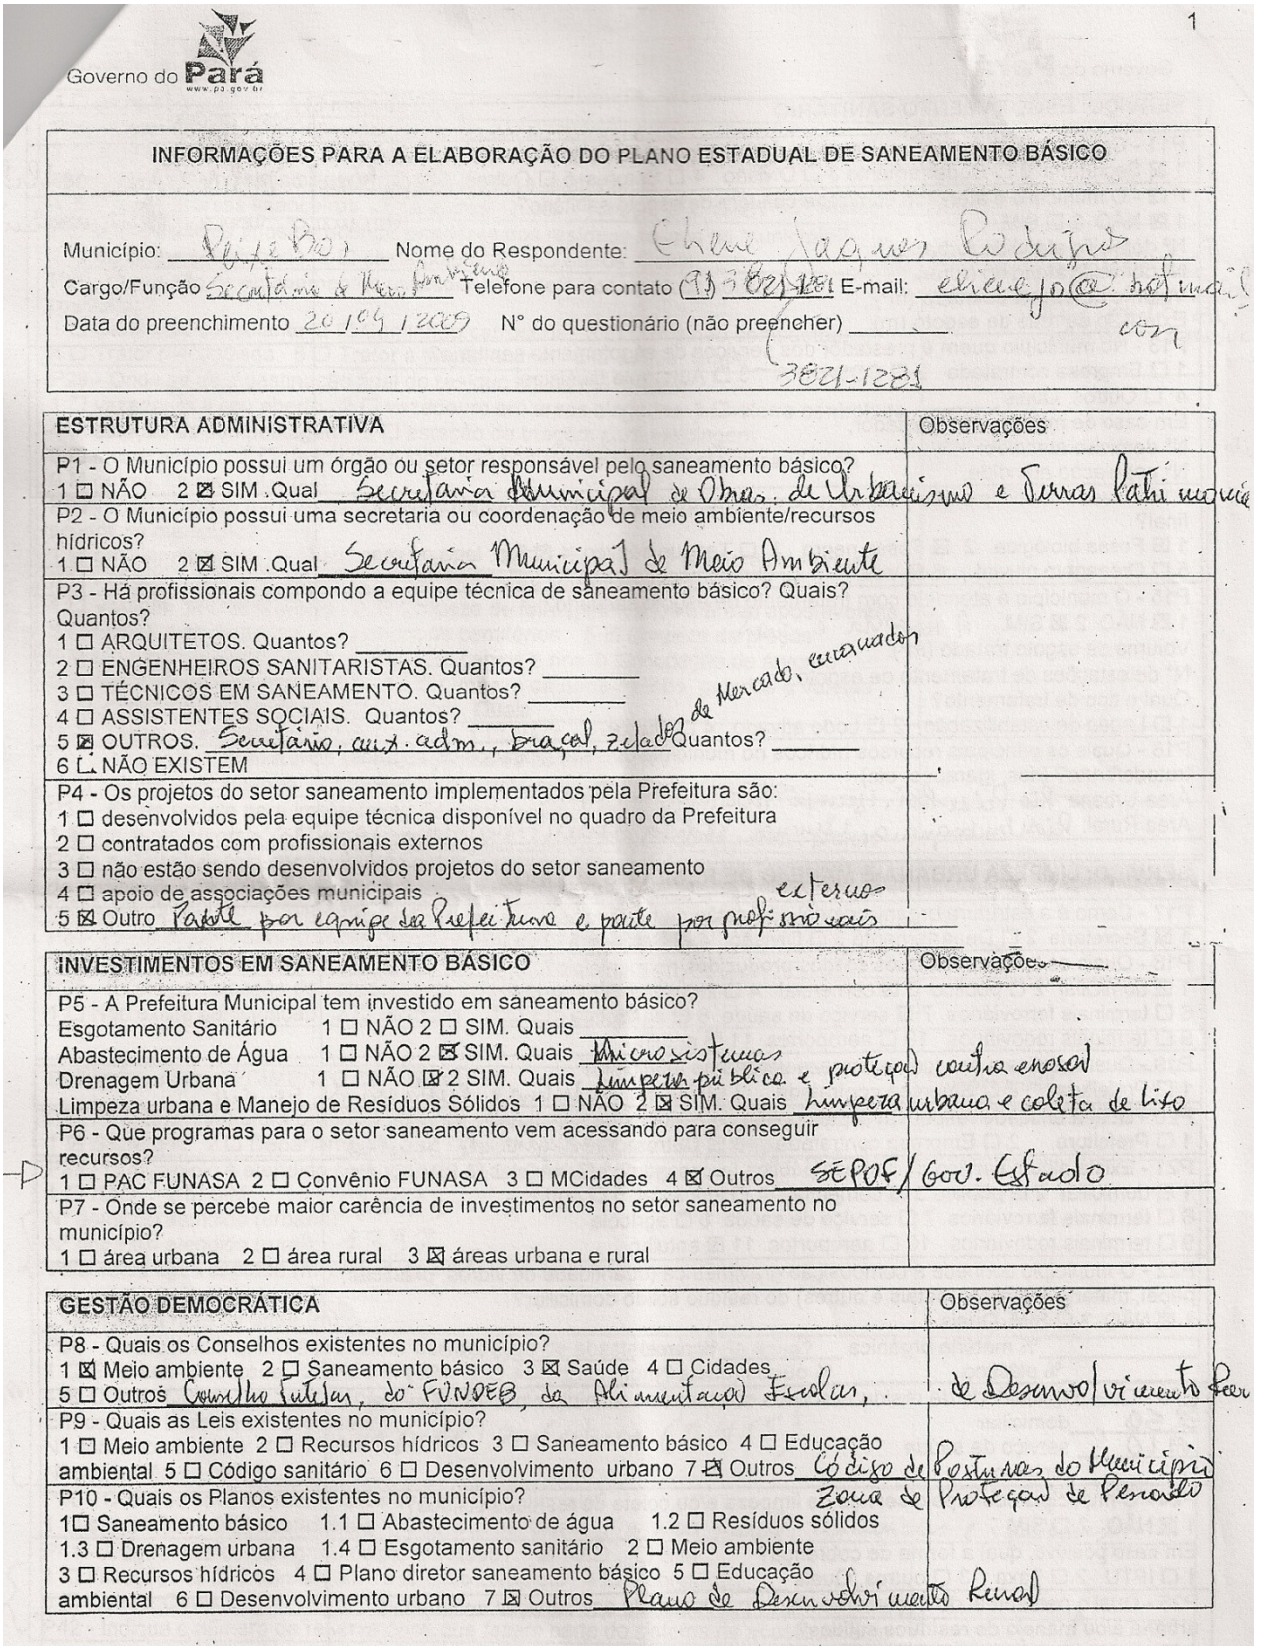 1
Governo do Pará
www.pa.gov.br
INFORMAÇÕES PARA A ELABORAÇÃO DO PLANO ESTADUAL DE SANEAMENTO BÁSICO
Município: Peixe Boi Nome do Respondente: Eliene Jaques Rodrigues
Cargo/Função Secretária de Meio Ambiente Telefone para contato (91) 3821-1281 E-mail: elienejo@hotmail
Data do preenchimento 20/04/2009 N° do questionário (não preencher) com
3821-1281
ESTRUTURA ADMINISTRATIVA Observações
P1 - O Município possui um órgão ou setor responsável pelo saneamento básico?
1 ☐ NÃO 2 ☒ SIM .Qual Secretaria Municipal de Obras, de Urbanismo e Terras Patrimoniais
P2 - O Município possui uma secretaria ou coordenação de meio ambiente/recursos
hídricos?
1 ☐ NÃO 2 ☒ SIM .Qual Secretaria Municipal de Meio Ambiente
P3 - Há profissionais compondo a equipe técnica de saneamento básico? Quais?
Quantos?
1 ☐ ARQUITETOS. Quantos?
2 ☐ ENGENHEIROS SANITARISTAS. Quantos?
3 ☐ TÉCNICOS EM SANEAMENTO. Quantos?
4 ☐ ASSISTENTES SOCIAIS. Quantos?
5 ☒ OUTROS. Secretário, aux. adm., braçal, zelador de Mercado, encanador Quantos?
6 ☐ NÃO EXISTEM
P4 - Os projetos do setor saneamento implementados pela Prefeitura são:
1 ☐ desenvolvidos pela equipe técnica disponível no quadro da Prefeitura
2 ☐ contratados com profissionais externos
3 ☐ não estão sendo desenvolvidos projetos do setor saneamento
4 ☐ apoio de associações municipais
5 ☒ Outro Parte por equipe da Prefeitura e parte por profissionais externos
INVESTIMENTOS EM SANEAMENTO BÁSICO Observações
P5 - A Prefeitura Municipal tem investido em saneamento básico?
Esgotamento Sanitário 1 ☐ NÃO 2 ☐ SIM. Quais
Abastecimento de Água 1 ☐ NÃO 2 ☒ SIM. Quais Microsistemas
Drenagem Urbana 1 ☐ NÃO ☒ 2 SIM. Quais Limpeza pública e proteção contra erosão
Limpeza urbana e Manejo de Resíduos Sólidos 1 ☐ NÃO 2 ☒ SIM. Quais Limpeza urbana e coleta de lixo
P6 - Que programas para o setor saneamento vem acessando para conseguir
recursos?
1 ☐ PAC FUNASA 2 ☐ Convênio FUNASA 3 ☐ MCidades 4 ☒ Outros SEPOF/Gov. Estado
P7 - Onde se percebe maior carência de investimentos no setor saneamento no
município?
1 ☐ área urbana 2 ☐ área rural 3 ☒ áreas urbana e rural
GESTÃO DEMOCRÁTICA Observações
P8 - Quais os Conselhos existentes no município?
1 ☒ Meio ambiente 2 ☐ Saneamento básico 3 ☒ Saúde 4 ☐ Cidades
5 ☐ Outros Conselho Tutelar, do FUNDEB, da Alimentação Escolar, de Desenvolvimento
P9 - Quais as Leis existentes no município?
1 ☐ Meio ambiente 2 ☐ Recursos hídricos 3 ☐ Saneamento básico 4 ☐ Educação
ambiental 5 ☐ Código sanitário 6 ☐ Desenvolvimento urbano 7 ☒ Outros Código de Posturas do Município
P10 - Quais os Planos existentes no município? Zona de Proteção de Pescado
1☐ Saneamento básico 1.1 ☐ Abastecimento de água 1.2 ☐ Resíduos sólidos
1.3 ☐ Drenagem urbana 1.4 ☐ Esgotamento sanitário 2 ☐ Meio ambiente
3 ☐ Recursos hídricos 4 ☐ Plano diretor saneamento básico 5 ☐ Educação
ambiental 6 ☐ Desenvolvimento urbano 7 ☒ Outros Plano de Desenvolvimento Rural